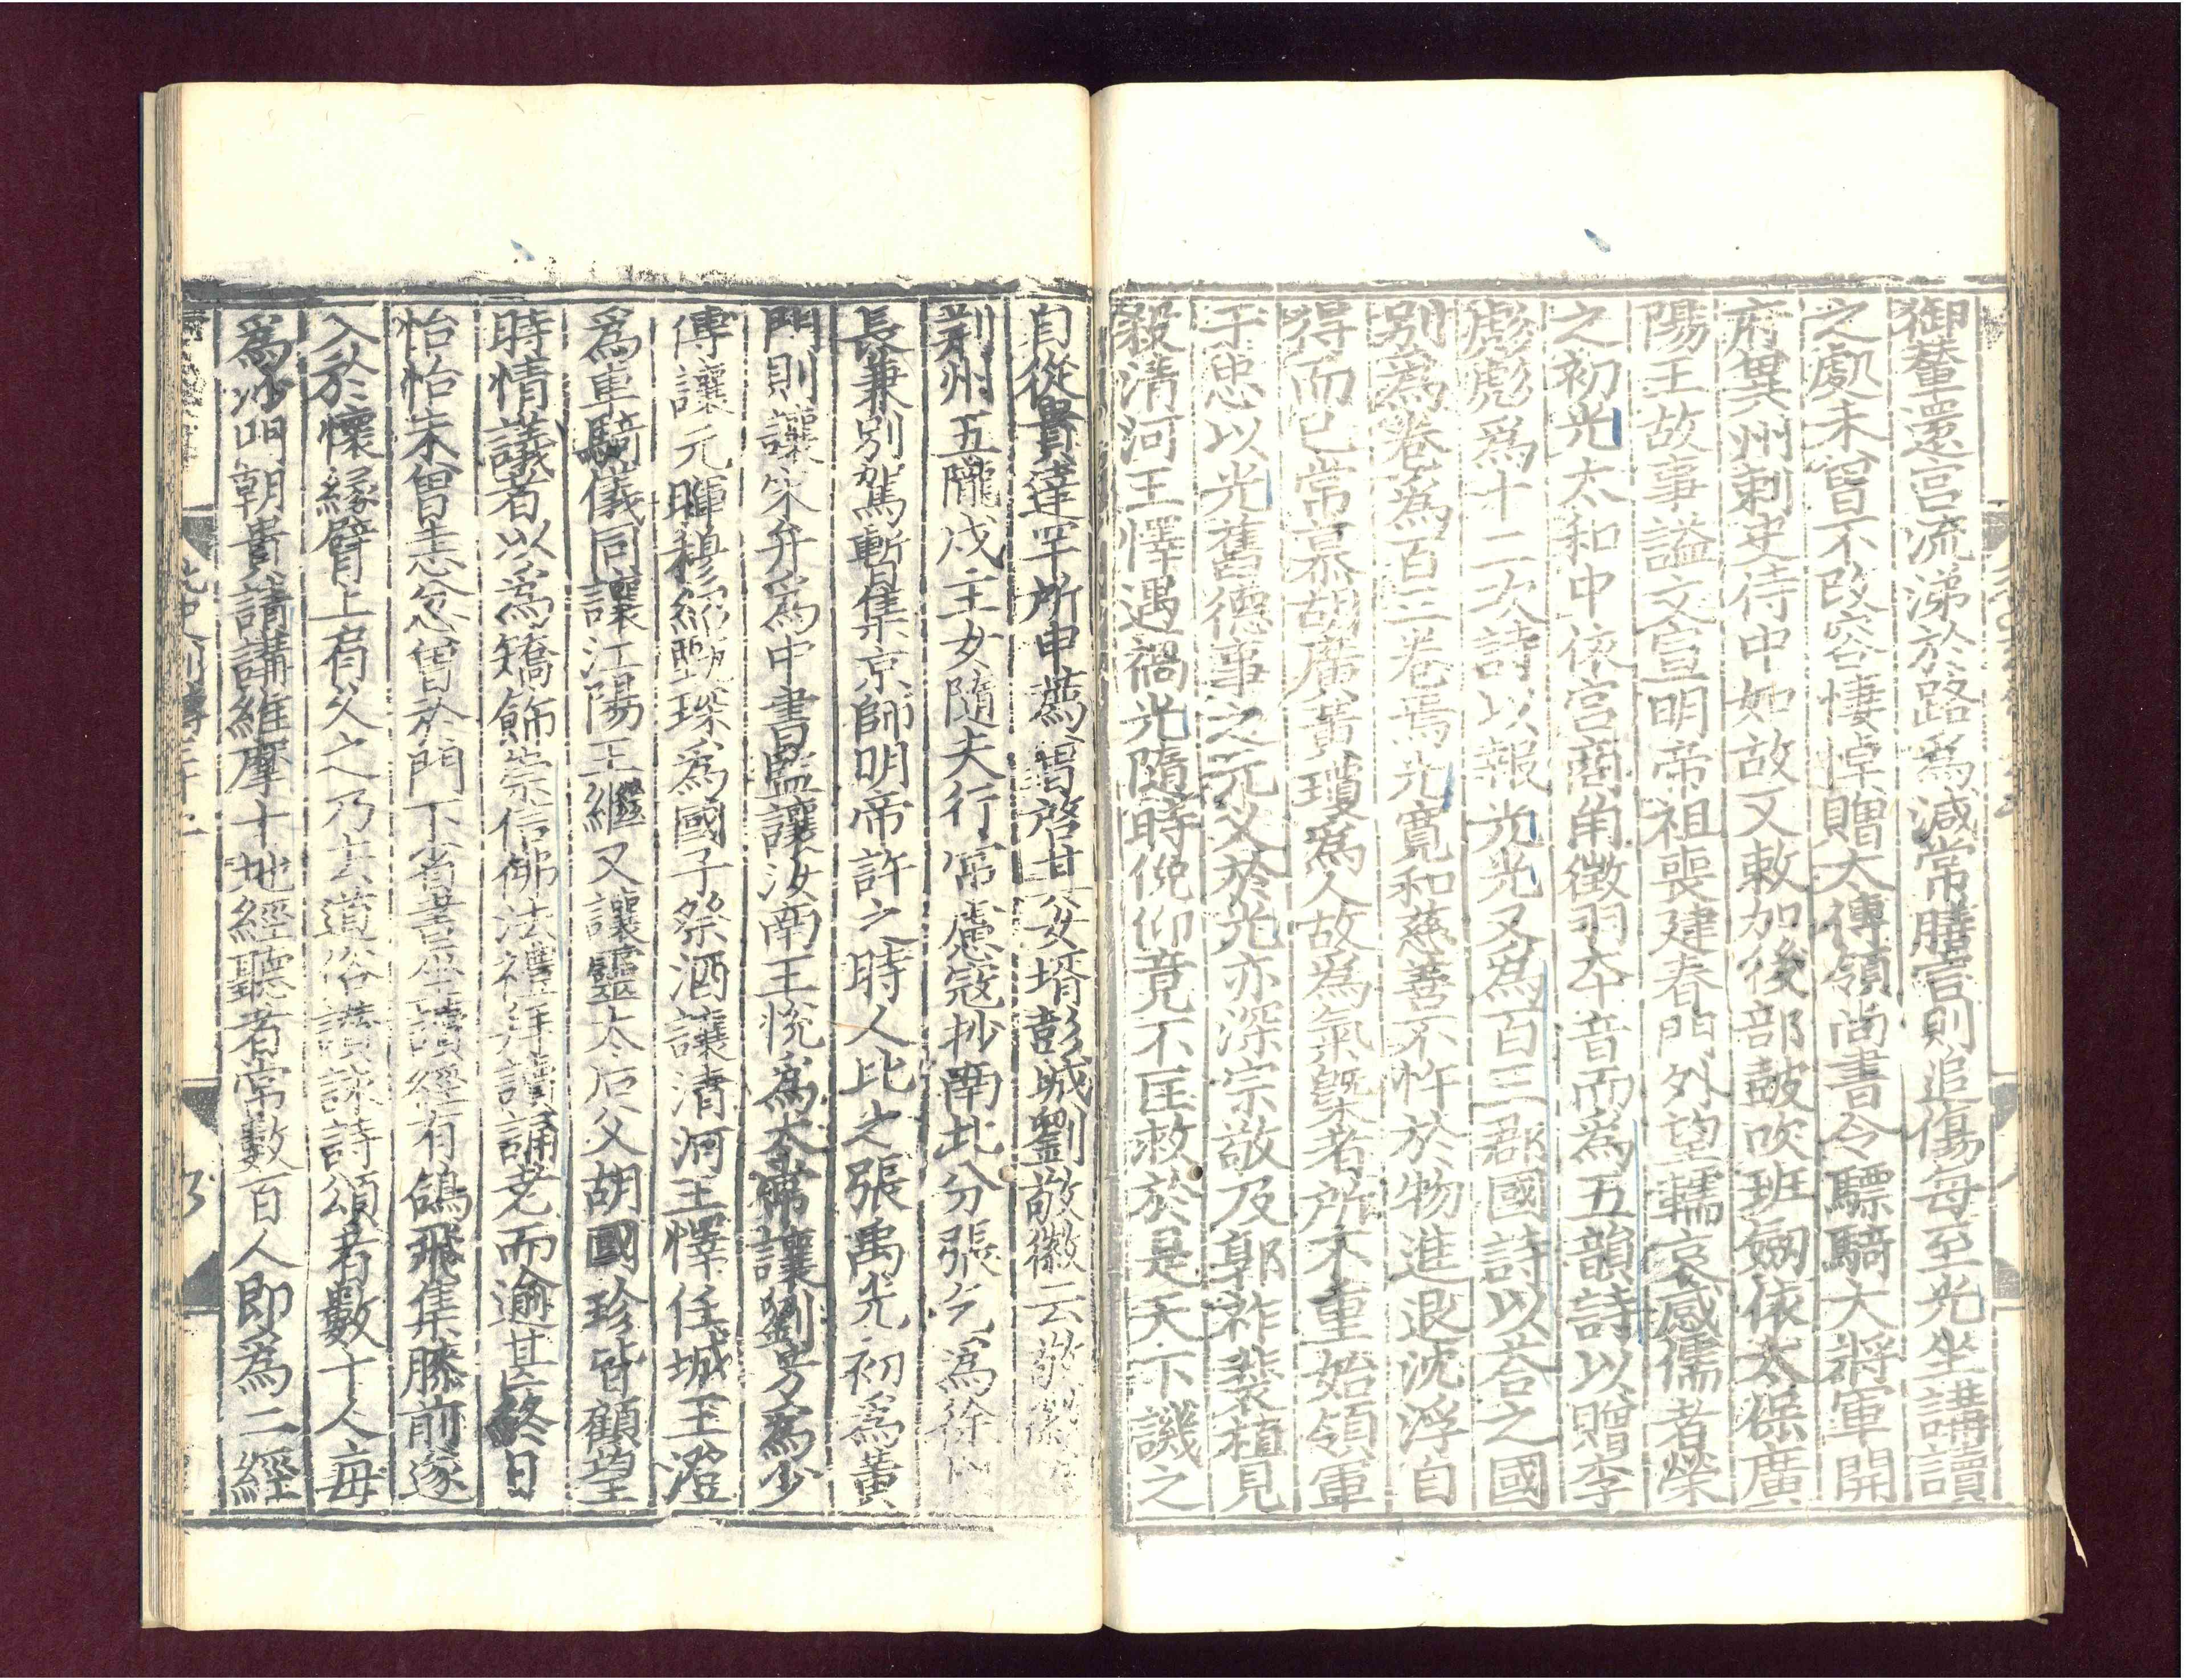 御輦還宮流涕於路爲減常膳言則追傷每至光坐講讀
之處未曾不改容悽悼贈太傅領尚書令驃騎大將軍開
府兾州刺史侍中如故又敕加後部皷吹班劒依太保廣
陽王故事謚文宣明帝祖喪建春門外望轜哀感儒者榮
之初光太和中依宮商角徵羽本音而爲五韻詩以贈李
彪彪爲十二次詩以報光光又爲百三郡國詩以荅之國
別爲卷爲百三卷焉光寬和慈善不忤於物進退沈浮自
得而已常慕胡廣黃瓊爲人故爲氣槩者所不重始領軍
于忠以光舊德事之元乂於光亦深宗敬及郭祚裴植見
殺淸河王懌遇禍光隨時俛仰竟不匡救於是天下譏之
自從貴達罕所申薦曾啓其女壻彭城劉敬徽云敬徽爲
荆州五隴戍主女隨夫行常慮寇抄南北分張乞爲徐州
長兼別駕暫集京師明帝許之時人比之張禹光初爲黃
門則讓宋弁爲中書監讓汝南王悅爲太常讓劉芳爲少
傅讓元暉穆紹甄琛爲國子祭酒讓淸河王懌任城王澄
爲車騎儀同讓江陽王繼又讓靈太后父胡國珍皆顧望
時情議者以爲矯飾崇信佛法禮拜讀誦老而逾甚終日
怡怡未曾恚忿曾於門下省晝坐讀經有鴿飛集膝前遂
入於懷緣臂上肩久之乃去道俗讚詠詩頌者數十人每
爲沙門朝貴請講維摩十地經聽者常數百人即爲二經